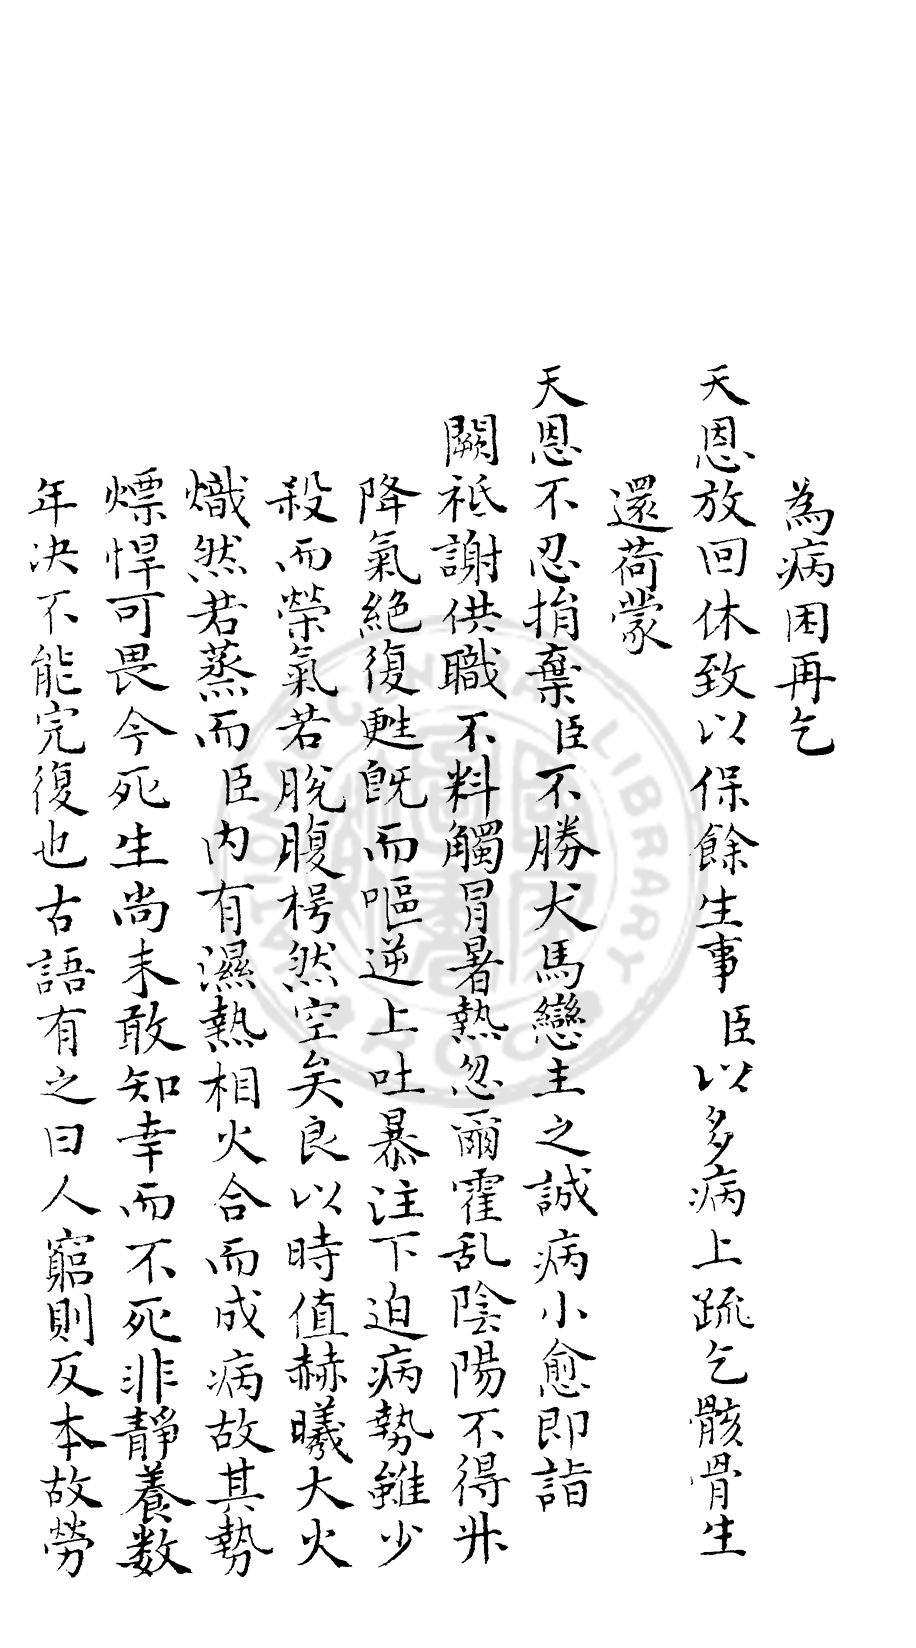 為病困再乞
天恩放回休致以保餘生事臣以多病上疏乞骸骨生
還荷蒙
天恩不忍捐棄臣不勝犬馬戀主之誠病小愈即詣
闕祗謝供職不料觸冒暑熱忽爾霍乱陰陽不得升
降氣絶復甦旣而嘔逆上吐暴注下迫病勢雖少
殺而榮氣若脫腹枵然空矣良以時值赫曦大火
熾然若蒸而臣内有濕熱相火合而成病故其勢
熛悍可畏今死生尚未敢知幸而不死非靜養数
年决不能完復也古語有之曰人窮則反本故勞
NATIONAL CENTRAL LIBRARY